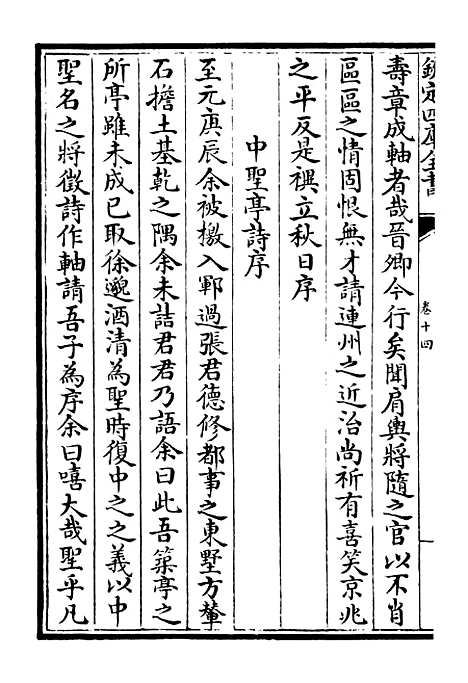 欽定四庫全書
卷十四
壽章成軸者哉晉卿今行矣聞肩輿將隨之官以不肖
區區之情固恨無才請連州之近治尚祈有喜笑京兆
之平反是禩立秋日序
中聖亭詩序
至元庚辰余被檄入鄆過張君德修都事之東墅方輦
石擔土基乾之隅余未詰君君乃語余曰此吾築亭之
所亭雖未成已取徐邈酒清為聖時復中之之義以中
聖名之將徵詩作軸請吾子為序余曰嘻大哉聖乎凡